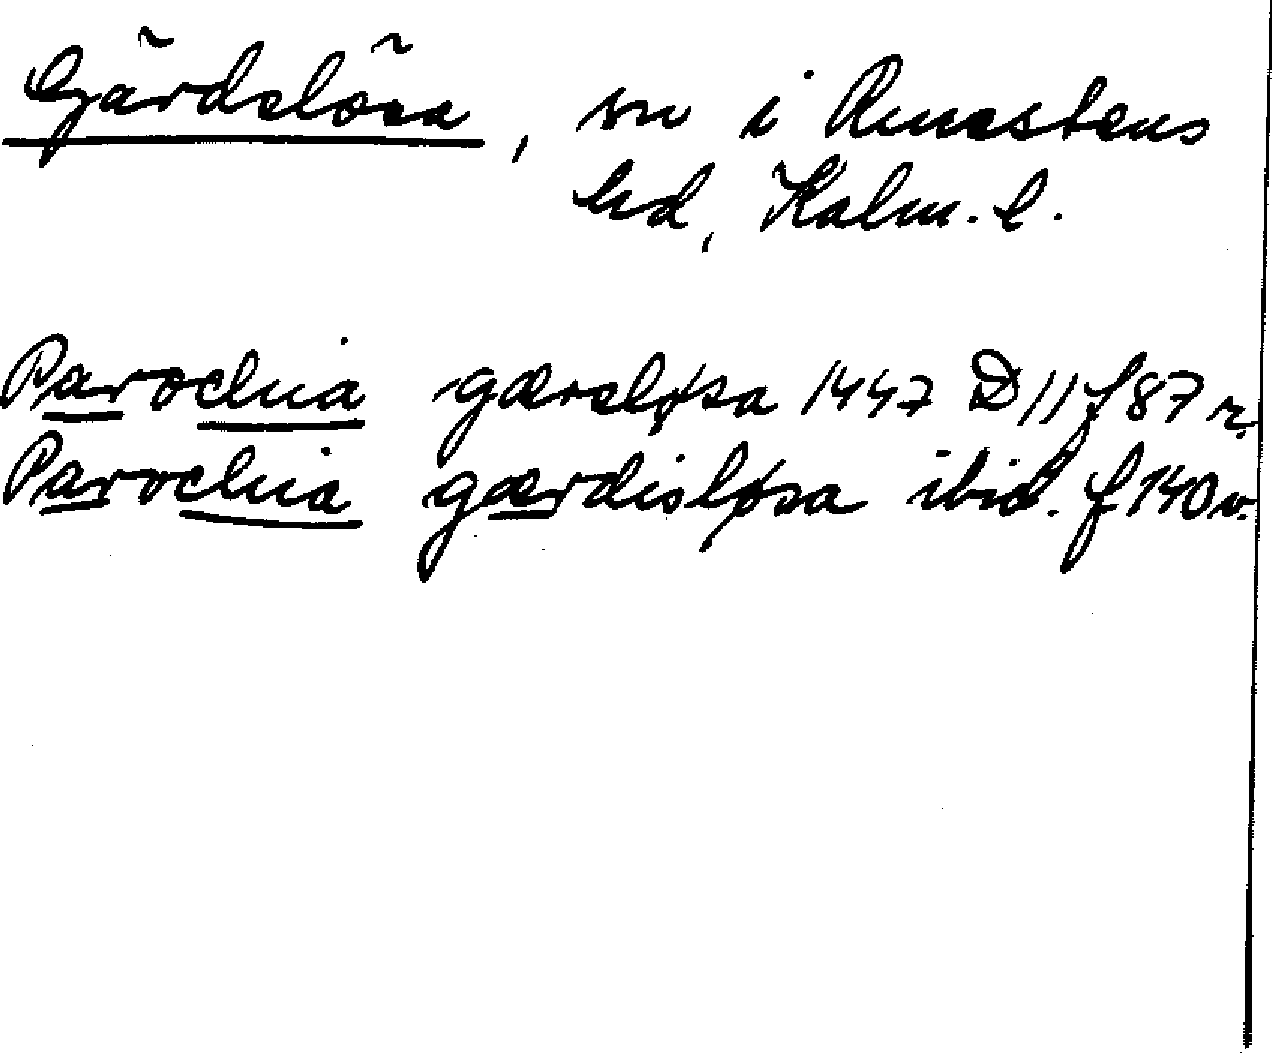 Gärdslösa, sn i Runstens
hd, Kalm. l.
Parochia gærsløsa 1447 D 11 f 87 r.
Parochia gærdisløsa ibid. f 140 v.